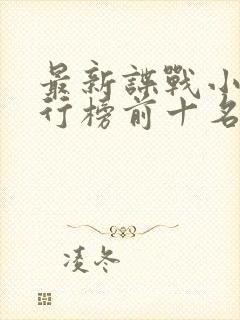 最新諜戰小
行榜前十名
凌冬